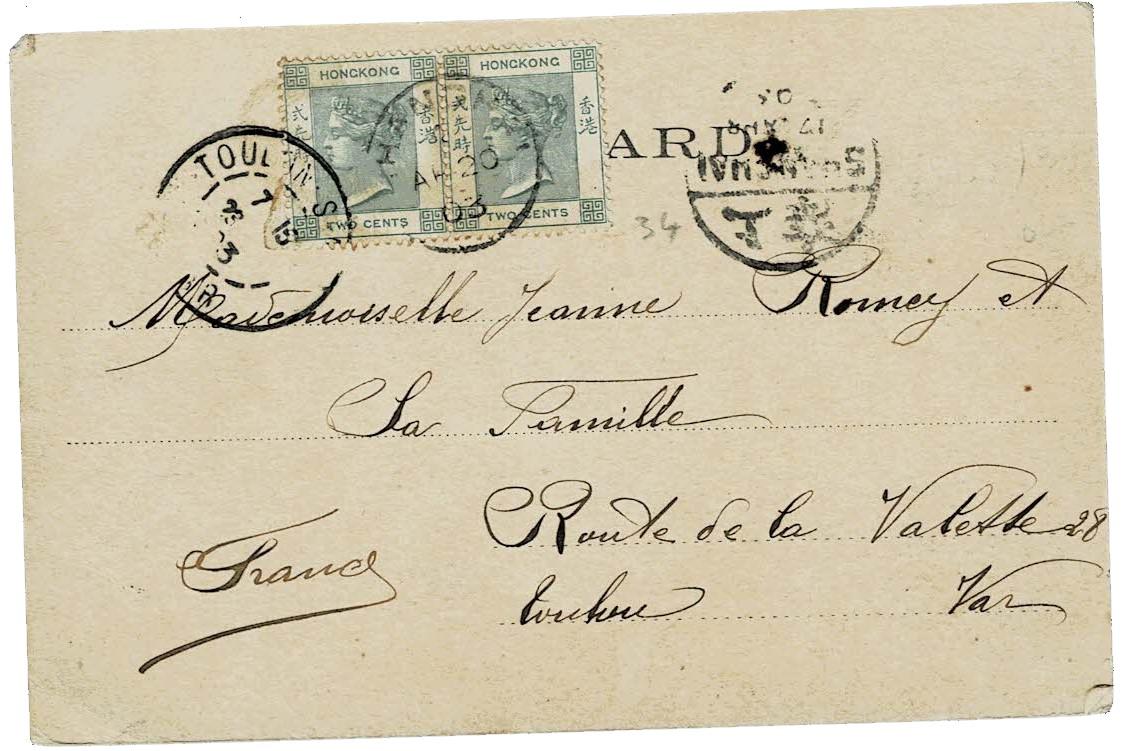 HONGKONG HONGKONG
香港 香港
TWO CENTS TWO CENTS
AP 20
03
TOULON-S
7
ARD
SHANGHAI
34
Mademoiselle Jeanne Romey et
La Famille
Route de la Valette 28
Toulon Var
France